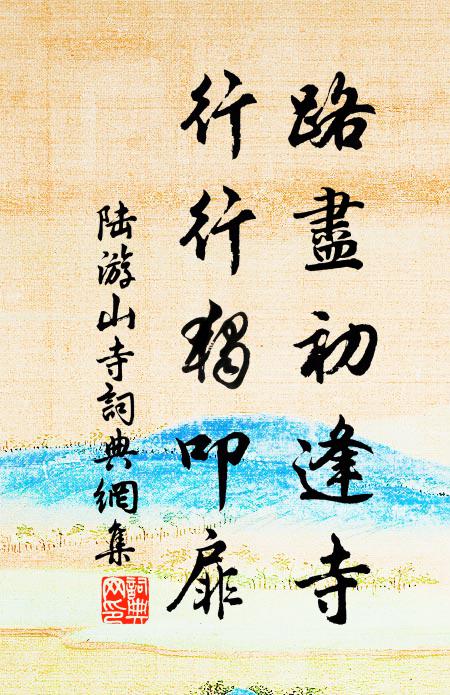 路盡初逢寺
行行獨叩扉
陆游山寺詞典網集
詞典网印